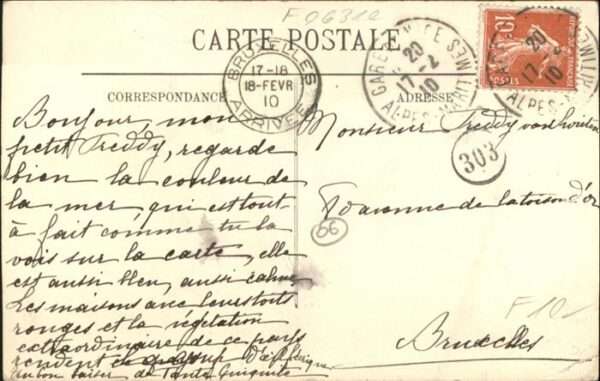 F 06310
CARTE POSTALE
CORRESPONDANCE
ADRESSE
BRUXELLES
17-18
18-FEVR
10
ARRIVEE
GARE DE
20
17-2
10
ALPES-MARITIMES
20
17-2
10
ALPES MARITIMES
10
POSTES
Bonjour, mon
petit Freddy, regarde
bien la couleur de
la mer qui est tout-
à fait comme tu la
vois sur la carte, elle
est aussi bleu, aussi calme,
Les maisons avec leurs toits
rouges et la végétation
extraordinaire de ce pays
rendent
un bon baiser de Tante Guiguite
Monsieur Freddy van
303
56
de la toison d'or
F 10-
Bruxelles